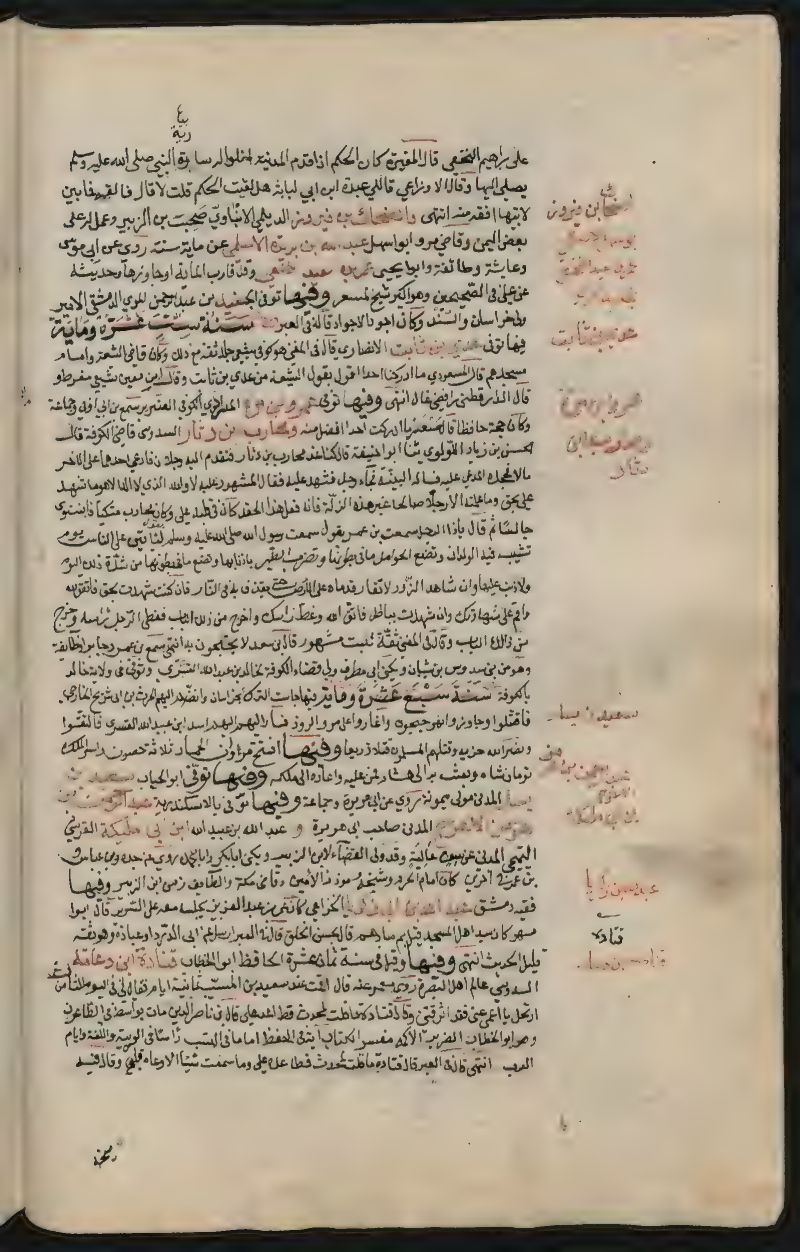 على ابراهيم النخعي قال المغيرة كان الحكم اذا قدم المدينة اخلوا له سارية النبي صلى الله عليه وسلم
يصلي اليها وقال الاوزاعي قال لي عبدة ابن ابي لبابة هل لقيت الحكم قلت لا قال فالقه فما بين
لابتيها افقه منه انتهى والضحاك بن فيروز الديلمي الابناوي صحب بن الزبير وعمل له على
بعض اليمن وقاضي مرو ابو سهل عبد الله بن بريدة الاسلمي عن ماية سنة روى عن ابي موسى
وعايشة وطائفة وابو يحيى عمير بن سعيد النخعي وقد قارب المائة او جاوزها وحديثه
عن علي في الصحيحين وهو اكبر شيخ لمسعر وفيها توفي الجنيد بن عبد الرحمن المري الدمشقي الامير
ولي خراسان والسند وكان اجود الاجواد قاله في العبر سنة ست عشرة وماية
فيها توفي عدي بن ثابت الانصاري قال في المغني هو كوفي شيعي جلد ثقة مع ذلك وكان قاضي الشيعة وامام
مسجدهم قال المسعودي ما ادركنا احدا اقول بقول الشيعة من عدي بن ثابت وقال ابن معين شيعي مفرط و
قال الدارقطني رافضي غال انتهى وفيها توفي عمرو بن مرة المرادي الكوفي الضرير سمع بن ابي اوفى وجماعة
وكان حجة حافظا قال مسعر ما ادركت احدا افضل منه ومحارب بن دثار السدوسي قاضي الكوفة قال
الحسن بن زياد اللولوي ثنا ابو حنيفة قال كنا عند محارب بن دثار فتقدم اليه رجلان فادعى احدهما على الاخر
مالا فجحده المدعى عليه فساله البينة فجاء رجل فشهد عليه فقال المشهود عليه لا والله الذي لا اله الا هو ما شهد
علي بحق وما علمته الا رجلا صالحا غير هذه الزلة فانه فعل هذا لحقد كان في قلبه علي وكان محارب متكيا فاستوى
جالسا ثم قال ياذا الرجل سمعت بن عمر يقول سمعت رسول الله صلى الله عليه وسلم لياتين على الناس يوم
تشيب فيه الولدان وتضع الحوامل ما في بطونها وتضرب الطير باذنابها وتضع ما في بطونها من شدة ذلك اليوم
ولا ذنب عليها وان شاهد الزور لا تقار قدماه على الارض حتى يقذف به في النار فان كنت شهدت بحق فاتق الله
واقم على شهادتك وان شهدت بباطل فاتق الله وغط راسك واخرج من ذلك الباب فغطى الرجل راسه وخرج
من ذلك الباب وقال في المغني ثقة ثبت مشهور قال بن سعد لا يحتجون به انتهى سمع بن عمر وجابر وطائفة
وهو من بني سدوس بن شيبان ويكنى ابى مطرف ولي قضاء الكوفة لخالد بن عبد الله القسري وتوفي في ولاية خالد
بالكوفة سنة سبع عشرة وماية فيها جاشت الترك بخراسان وانضم اليهم الحرث بن ابي شريح الخارجي
فاقتتلوا وجاوزوا نهر جيحون واغاروا على مرو الروذ فسار اليهم اسد ابن عبد الله القسري فالتقوا
ونصر الله حزبه وقتلهم المسلمون قتلا ذريعا وفيها افتتح مروان الحمار ثلاثة حصون واسر الملك
تومان شاه وبعث به الى هشام فمن عليه واعاده الى ملكه وفيها توفي ابو الحباب سعيد بن
يسار المدني مولى ميمونة روى عن ابي هريرة وجماعة وفيها توفي بالاسكندرية عبد الرحمن بن
هرمز الاعرج المدني صاحب ابي هريرة و عبد الله بن عبيد الله ابن ابي مليكة القرشي
التيمي المدني عن سن عالية وقد ولي القضاء لابن الزبير ويكنى ابابكر وابا محمد روى عن جده وبن عباس
بن عمر في اخرين كان امام الحرم وشيخه ومؤذنه الامين وقاضي مكة والطائف زمن ابن الزبير وفيها
فقيه دمشق عبد الله بن ابي زكريا الخزاعي كان عمر بن عبد العزيز يجلسه معه على السرير قال ابو
مسهر كان سيد اهل المسجد قيل بم سادهم قال بحسن الخلق قاله في العبر ارسل عن ابي الدرداء وعبادة وهو ثقة
قليل الحديث انتهى وفيها وقيل في سنة ثمان عشرة الحافظ ابو الخطاب قتادة ابن دعامة
السدوسي عالم اهل البصرة روى معمر عنه قال اقمت عند سعيد بن المسيب ثمانية ايام فقال لي في اليوم الثامن
ارتحل يا اعمى عني فقد انزفتني وقال قتادة ما قلت لمحدث قط اعد علي قال بن ناصر الدين مات بواسط في الطاعون
وهو ابو الخطاب الضرير الاكمه مفسر الكتاب اية في الحفظ اماما في النسب راسا في العربية واللغة وايام
العرب انتهى قال في العبر قال قتادة ما قلت لمحدث قط اعد علي وما سمعت شيئا الا وعاه قلبي وقال فيه
الضحاك بن فيروز
عدي بن ثابت
عمرو ابن مرة
محارب ابن
دثار
سعيد بن يسار
عبد الله بن زكريا
قتادة